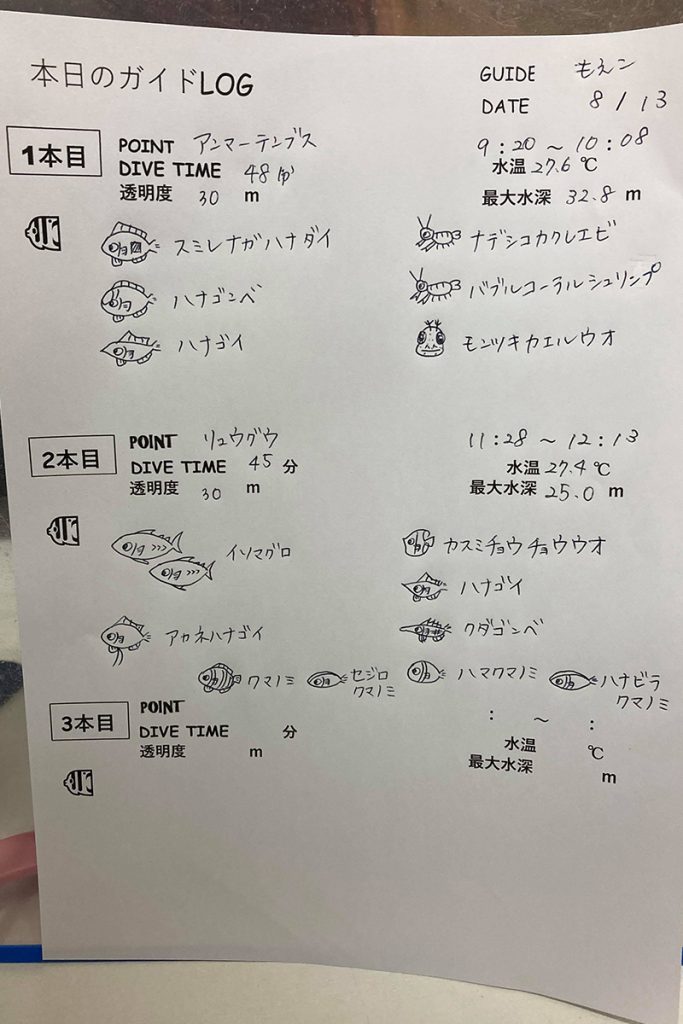 本日のガイドLOG
GUIDE もえこ
DATE 8/13
1本目
POINT アンマーテンブス
DIVE TIME 48分
透明度 30 m
9:20 ~ 10:08
水温 27.6 ℃
最大水深 32.8 m
スミレナガハナダイ
ハナゴンベ
ハナゴイ
ナデシコカクレエビ
バブルコーラルシュリンプ
モンツキカエルウオ
2本目
POINT リュウグウ
DIVE TIME 45 分
透明度 30 m
11:28 ~ 12:13
水温 27.4 ℃
最大水深 25.0 m
イソマグロ
アカネハナゴイ
カスミチョウチョウウオ
ハナゴイ
クダゴンベ
クマノミ
セジロ
クマノミ
ハマクマノミ
ハナビラ
クマノミ
3本目
POINT
DIVE TIME 分
透明度 m
: ~ :
水温 ℃
最大水深 m